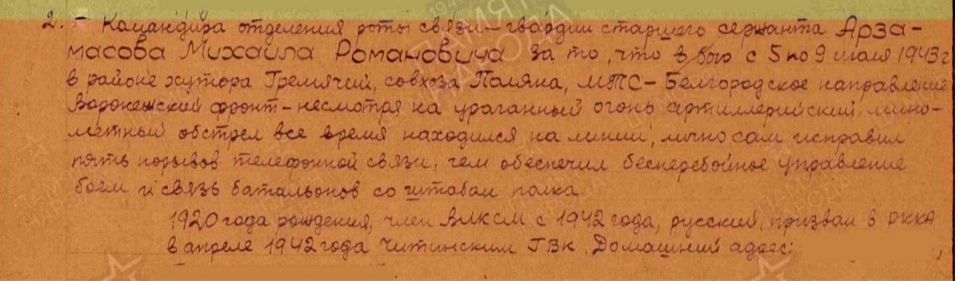 2. - Командира отделения роты связи - гвардии старшего сержанта Арза-
масова Михаила Романовича за то, что в бою с 5 по 9 июля 1943 г
в районе хутора Гремячий, совхоза Поляна, МТС - Белгородское направление
Воронежский фронт - несмотря на ураганный огонь артиллерийский, мино-
метный обстрел все время находился на линии, лично сам исправил
пять порывов телефонной связи, чем обеспечил бесперебойное управление
боем и связь батальонов со штабом полка.
1920 года рождения, член ВЛКСМ с 1942 года, русский, призван в РККА
в апреле 1942 года Читинским ГВК. Домашний адрес: